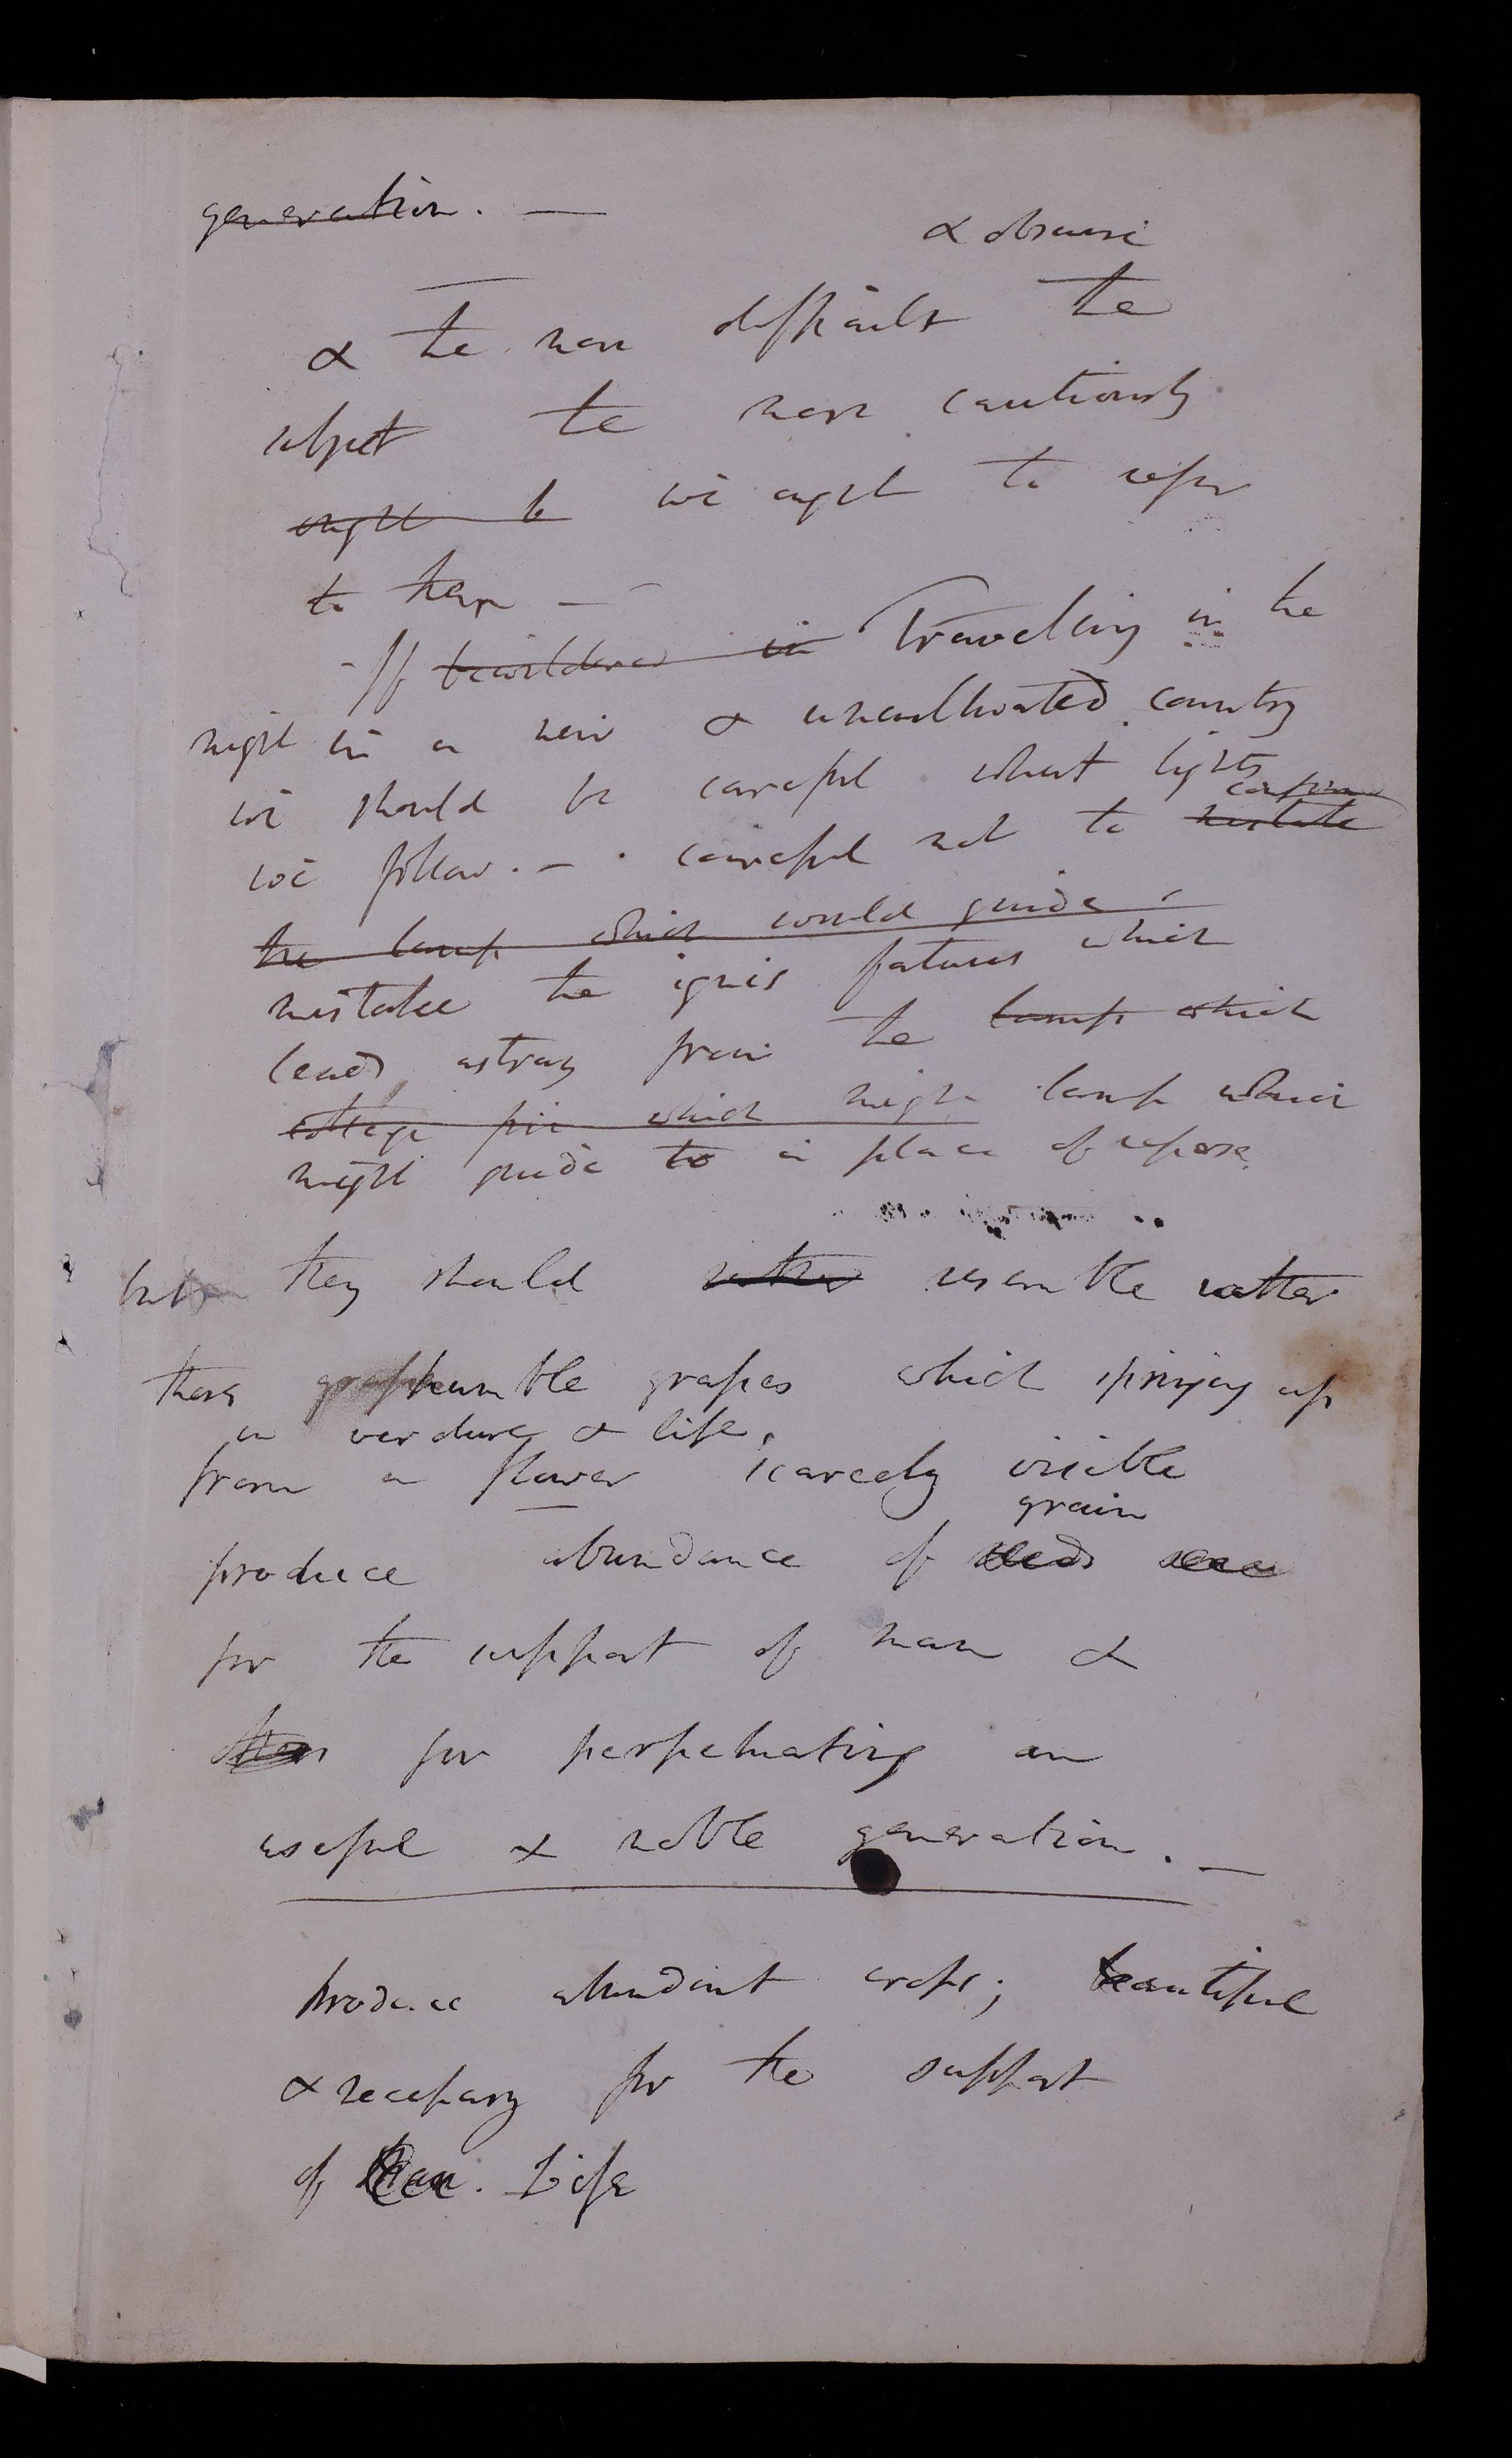 generation. —
& obscure
& the more difficult the
subject the more cautiously
ought to we ought to refer
to them —
If bewildered in Travelling in the
night in a new & uncultivated country
we should be careful what lights
confound
we follow. — careful not to mistake
the lamp which would guide
mistake the ignis fatuus which
leads astray from the lamp which
cottage fire which might lamp which
might guide to a place of repose
but they should rather resemble rather
those humble grapes which springing up
in verdure & life,
from a flower scarcely visible
grain
produce abundance of seeds
for the support of man &
for perpetuating an
useful & noble generation. —
Produce abundant crops; beautiful
& necessary for the support
of Man. Life